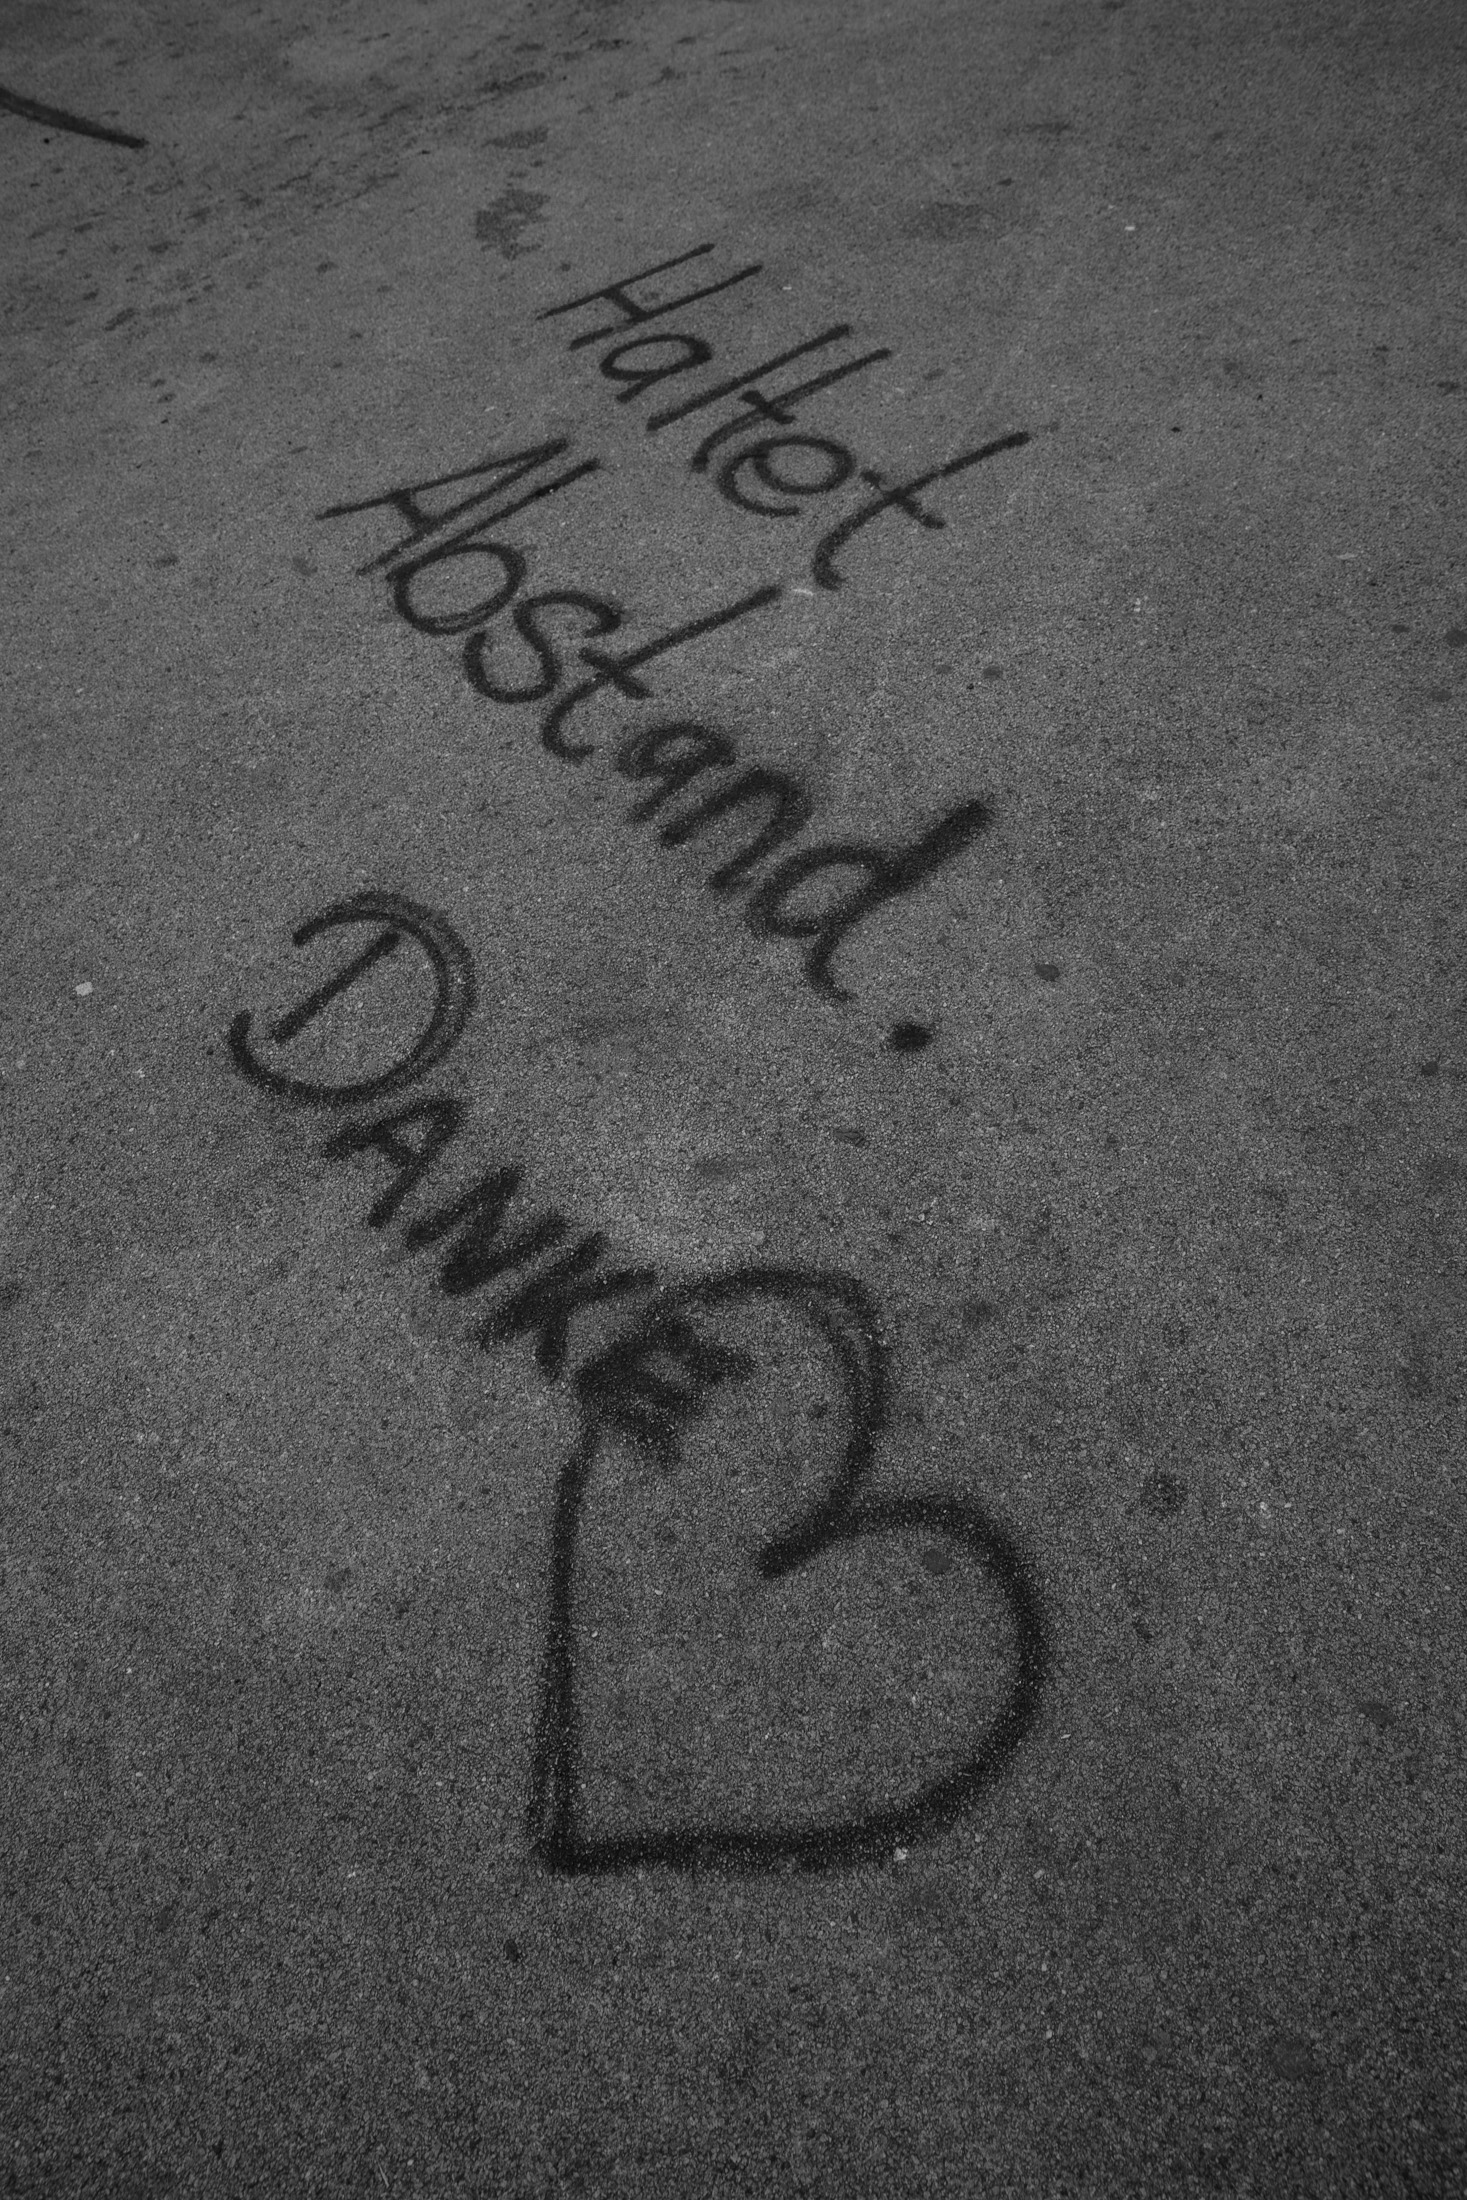 Haltet
Abstand.
DANKE